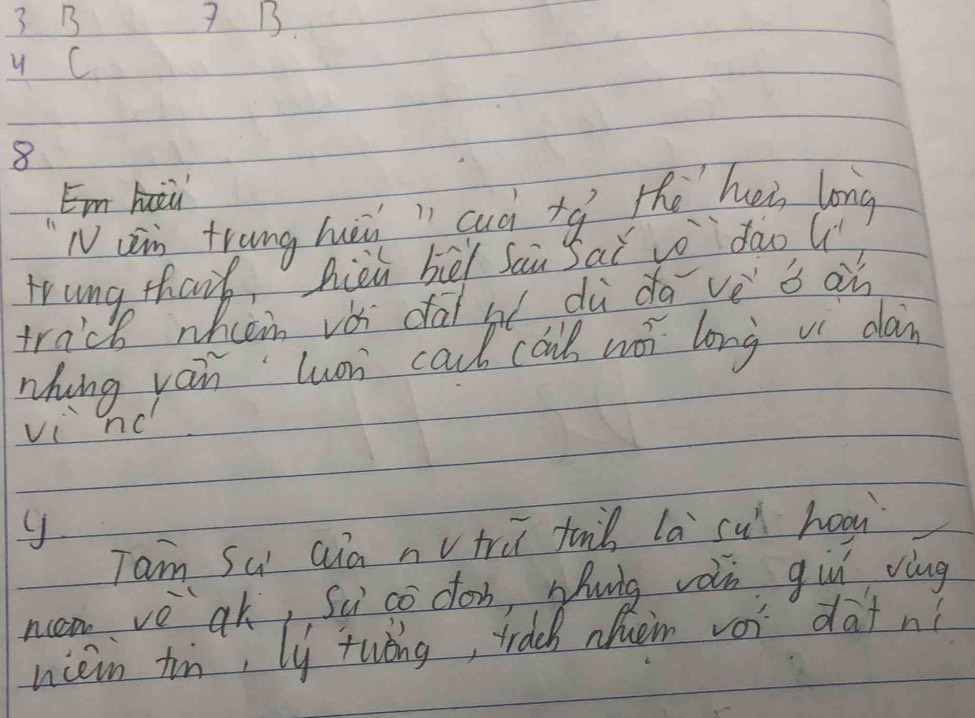 3 B 7 B.
4 C
8
Em hiểu
"Niềm trung hiếu" của tg thể hiện lòng
trung thành, hiểu biết sâu sắc về đạo lí,
trách nhiệm với đất nc dù đã về ở ẩn
nhưng vẫn luôn canh cánh nỗi lòng vì dân
vì nc.
9.
Tâm sự của nv trữ tình là sự hoài
niệm về qk, sự cô đơn, nhưng vẫn giữ vững
niềm tin, lý tưởng, trách nhiệm với đất nc